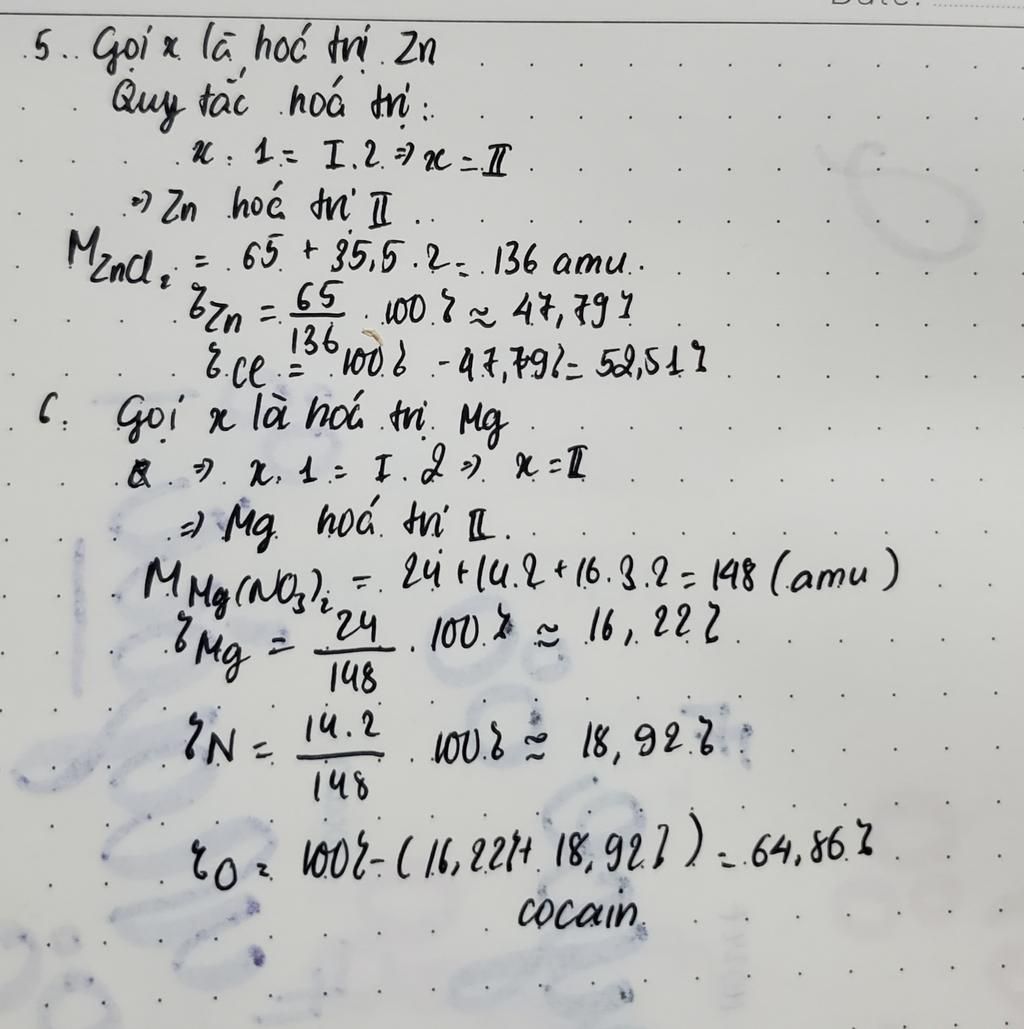 Date:
5. Gọi x là hoá trị Zn
Quy tắc hoá trị:
x . 1 = I . 2 => x = II
=> Zn hoá trị II
M ZnCl₂ = 65 + 35,5 . 2 = 136 amu.
% Zn = 65/136 . 100% ≈ 47,79%
% Cl = 100% - 47,79% = 52,51%
6. Gọi x là hoá trị Mg
=> x . 1 = I . 2 => x = II
=> Mg hoá trị II.
M Mg(NO₃)₂ = 24 + 14.2 + 16.3.2 = 148 (amu)
% Mg = 24/148 . 100% ≈ 16,22%
% N = 14.2/148 . 100% ≈ 18,92%
% O = 100% - (16,22% + 18,92%) = 64,86%
cocain